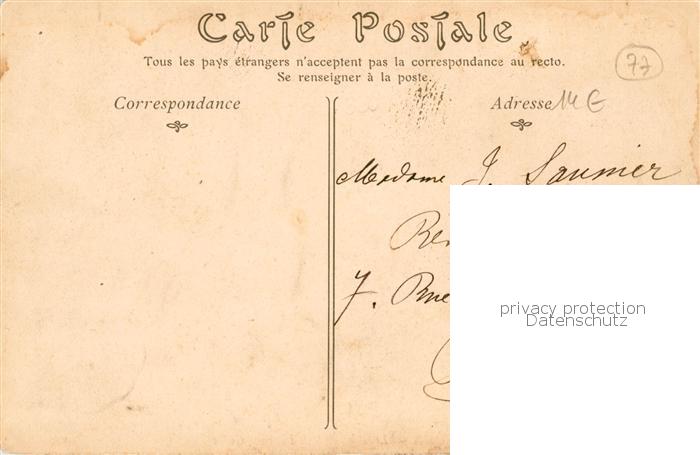 Carte Postale
Tous les pays étrangers n'acceptent pas la correspondance au recto.
Se renseigner à la poste.
77
Correspondance
Adresse 14 €
Madame J. Saunier
7. Rue
privacy protection
Datenschutz